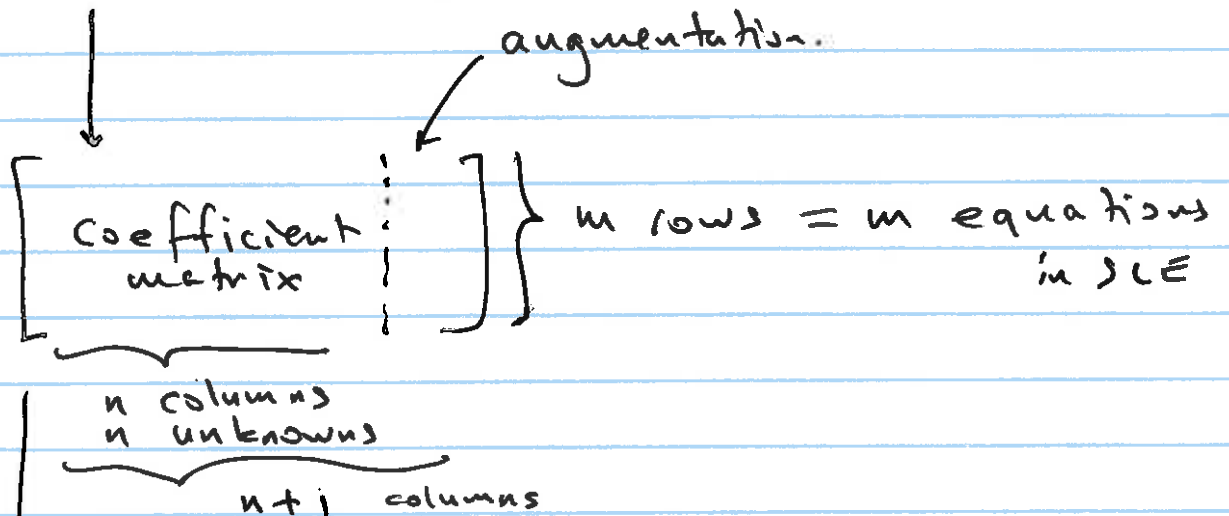 augmentation.
coefficient
matrix
m rows = m equations
in SLE
n columns
n unknowns
n + 1 columns